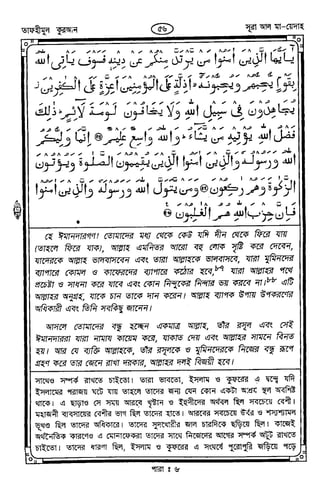 তাফহীমুল কুরআন
৫৬
সূরা আল মা-য়েদাহ
يٰۤاَيُّهَا الَّذِيْنَ اٰمَنُوْا مَنْ يَّرْتَدَّ مِنْكُمْ عَنْ دِيْنِهٖ فَسَوْفَ يَاْتِى اللّٰهُ
بِقَوْمٍ يُّحِبُّهُمْ وَيُحِبُّوْنَهٗۤ ۙ اَذِلَّةٍ عَلَى الْمُؤْمِنِيْنَ اَعِزَّةٍ عَلَى الْكٰفِرِيْنَ ؗ
يُجَاهِدُوْنَ فِىْ سَبِيْلِ اللّٰهِ وَلَا يَخَافُوْنَ لَوْمَةَ لَآئِمٍ ؕ ذٰلِكَ
فَضْلُ اللّٰهِ يُؤْتِيْهِ مَنْ يَّشَآءُ ؕ وَاللّٰهُ وَاسِعٌ عَلِيْمٌ ۝ اِنَّمَا وَلِيُّكُمُ
اللّٰهُ وَرَسُوْلُهٗ وَالَّذِيْنَ اٰمَنُوا الَّذِيْنَ يُقِيْمُوْنَ الصَّلٰوةَ وَيُؤْتُوْنَ
الزَّكٰوةَ وَهُمْ رٰكِعُوْنَ ۝ وَمَنْ يَّتَوَلَّ اللّٰهَ وَرَسُوْلَهٗ وَالَّذِيْنَ اٰمَنُوْا
فَاِنَّ حِزْبَ اللّٰهِ هُمُ الْغٰلِبُوْنَ ۝
হে ঈমানদারগণ! তোমাদের মধ্য থেকে কেউ যদি দীন থেকে ফিরে যায়
(তাহলে ফিরে যাক), আল্লাহ এমনিতর আরো বহু লোক সৃষ্টি করে দেবেন,
যাদেরকে আল্লাহ ভালবাসবেন এবং তারা আল্লাহকে ভালবাসবে, যারা মুমিনদের
ব্যাপারে কোমল ও কাফেরদের ব্যাপারে কঠোর হবে,৮৭ যারা আল্লাহর পথে
প্রচেষ্টা ও সাধনা করে যাবে এবং কোন নিন্দুকের নিন্দার ভয় করবে না।৮৮ এটি
আল্লাহর অনুগ্রহ, যাকে চান তাকে দান করেন। আল্লাহ ব্যাপক উপায় উপকরণের
অধিকারী এবং তিনি সবকিছু জানেন।
আসলে তোমাদের বন্ধু হচ্ছেন একমাত্র আল্লাহ, তাঁর রসূল এবং সেই
ঈমানদাররা যারা নামায কায়েম করে, যাকাত দেয় এবং আল্লাহর সামনে বিনত
হয়। আর যে ব্যক্তি আল্লাহকে, তাঁর রসূলকে ও মুমিনদেরকে নিজের বন্ধু রূপে
গ্রহণ করে তার জেনে রাখা দরকার, আল্লাহর দলই বিজয়ী হবে।
সাথেও সম্পর্ক রাখতে চাইতো। তারা ভাবতো, ইসলাম ও কুফরের এ দ্বন্দ্বে যদি
ইসলামের পরাজয় ঘটে যায় তাহলে তাদের জন্য যেন কোন একটা আশ্রয় স্থল অবশিষ্ট
থাকে। এ ছাড়াও সে সময় আরবে খৃষ্টান ও ইহুদীদের অর্থবল ছিল সবচেয়ে বেশী।
মহাজনী ব্যবসায়ের বেশীর ভাগ ছিল তাদের হাতে। আরবের সবচেয়ে উর্বর ও শস্যশ্যামল
ভূখণ্ড ছিল তাদের অধিকারে। তাদের সুদখোরীর জাল চারদিকে ছড়িয়ে ছিল। কাজেই
অর্থনৈতিক কারণেও এ মোনাফেকরা তাদের সাথে নিজেদের আগের সম্পর্ক অটুট রাখতে
চাইতো। তাদের ধারণা ছিল, ইসলাম ও কুফরের এ সংঘর্ষে পুরোপুরি জড়িয়ে পড়ে
পারা : ৬